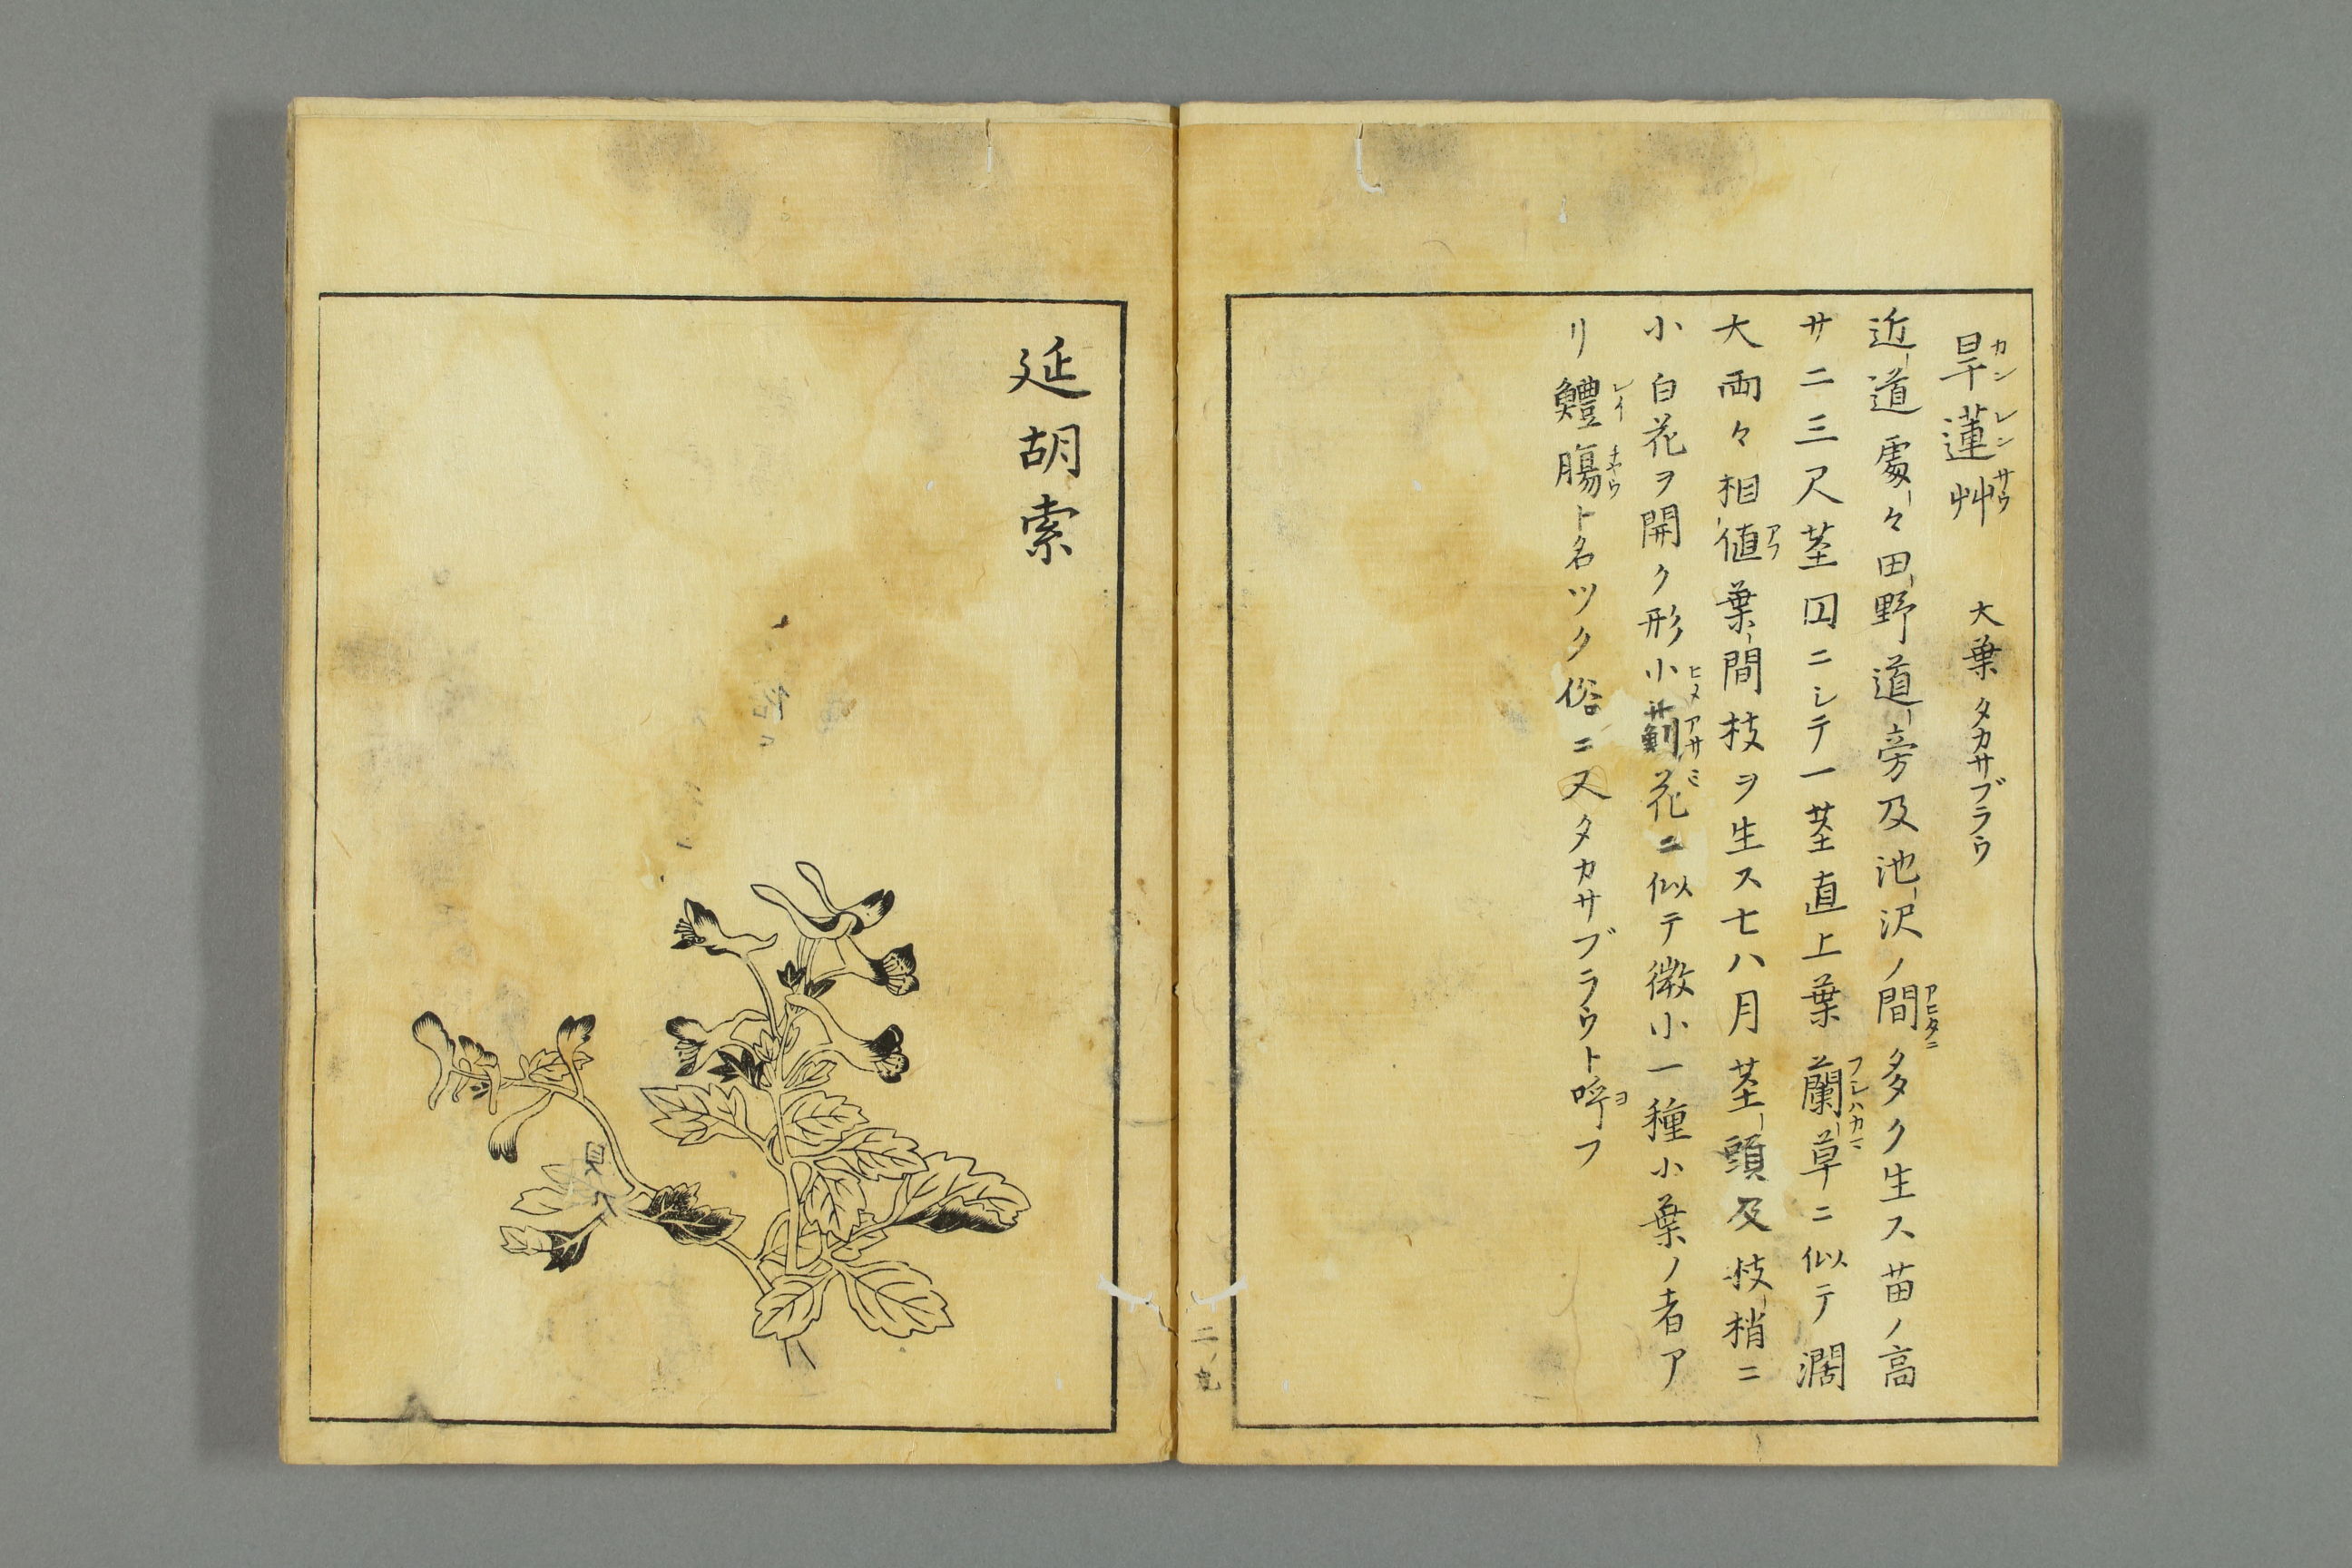 旱蓮艸 大葉タカサブラウ
カンレンサウ
近道處々田野道旁及池沢ノ間多ク生ス苗ノ高
アヒタニ
サ二三尺茎円ニシテ一茎直上葉蘭草ニ似テ濶
フシハカマ
大両々相値葉間枝ヲ生ス七八月茎頭及枝梢ニ
アフ
小白花ヲ開ク形小薊花ニ似テ微小一種小葉ノ者ア
ヒメアサミ
リ鱧腸ト名ツク俗ニ又タカサブラウト呼フ
レイ
チヤウ
ヨ
延胡索